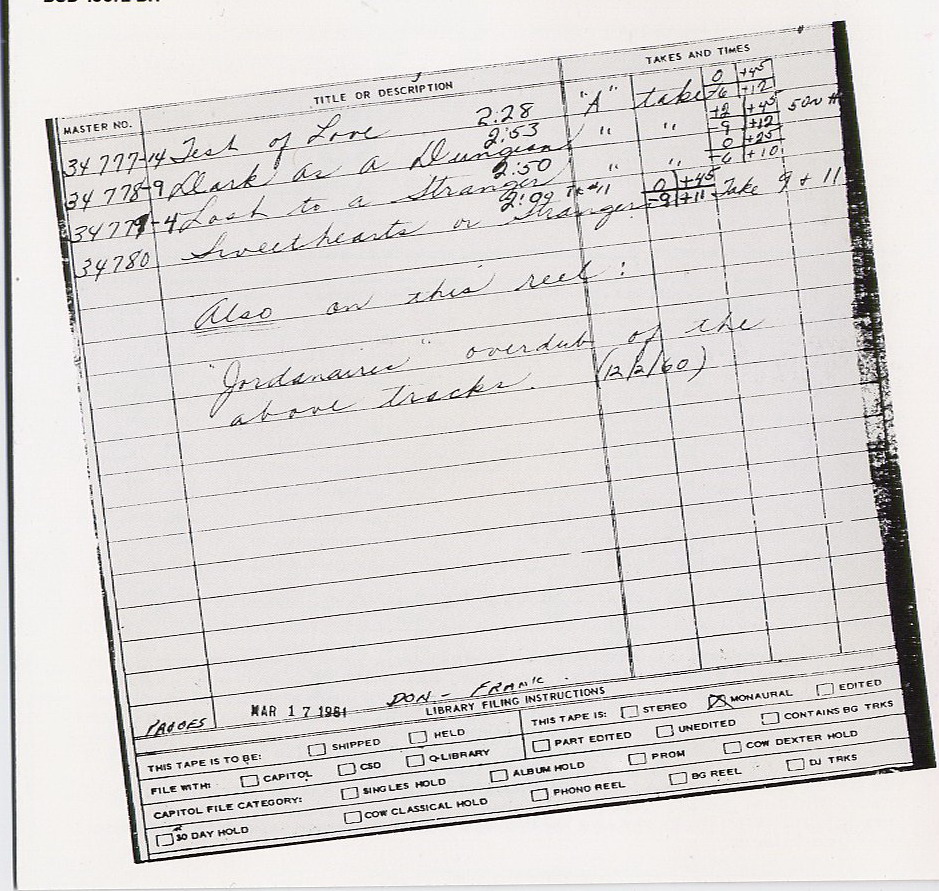 TITLE OR DESCRIPTION
TAKES AND TIMES
MASTER NO.
34777-14 Test of Love 2:28 "A" take 0 +45
-6 +12
34778-9 Dark as a Dungeon 2:53 " " +2 +45 500 #
-9 +12
34779-4 Lost to a Stranger 2:50 " " 0 +25
-6 +10
34780 Sweethearts or Strangers 2:09 TK #11 0 +45 Take 9 + 11
-9 +11
Also on this reel:
"Jordanaires" overdub of the
above tracks. (12/2/60)
PROOFS MAR 17 1961 DON - FRANK
LIBRARY FILING INSTRUCTIONS
THIS TAPE IS TO BE: SHIPPED HELD
THIS TAPE IS: STEREO MONAURAL EDITED
FILE WITH: CAPITOL CSD Q-LIBRARY
PART EDITED UNEDITED CONTAINS BG TRKS
CAPITOL FILE CATEGORY: SINGLES HOLD ALBUM HOLD PROM COW DEXTER HOLD
30 DAY HOLD COW CLASSICAL HOLD PHONO REEL BG REEL DJ TRKS